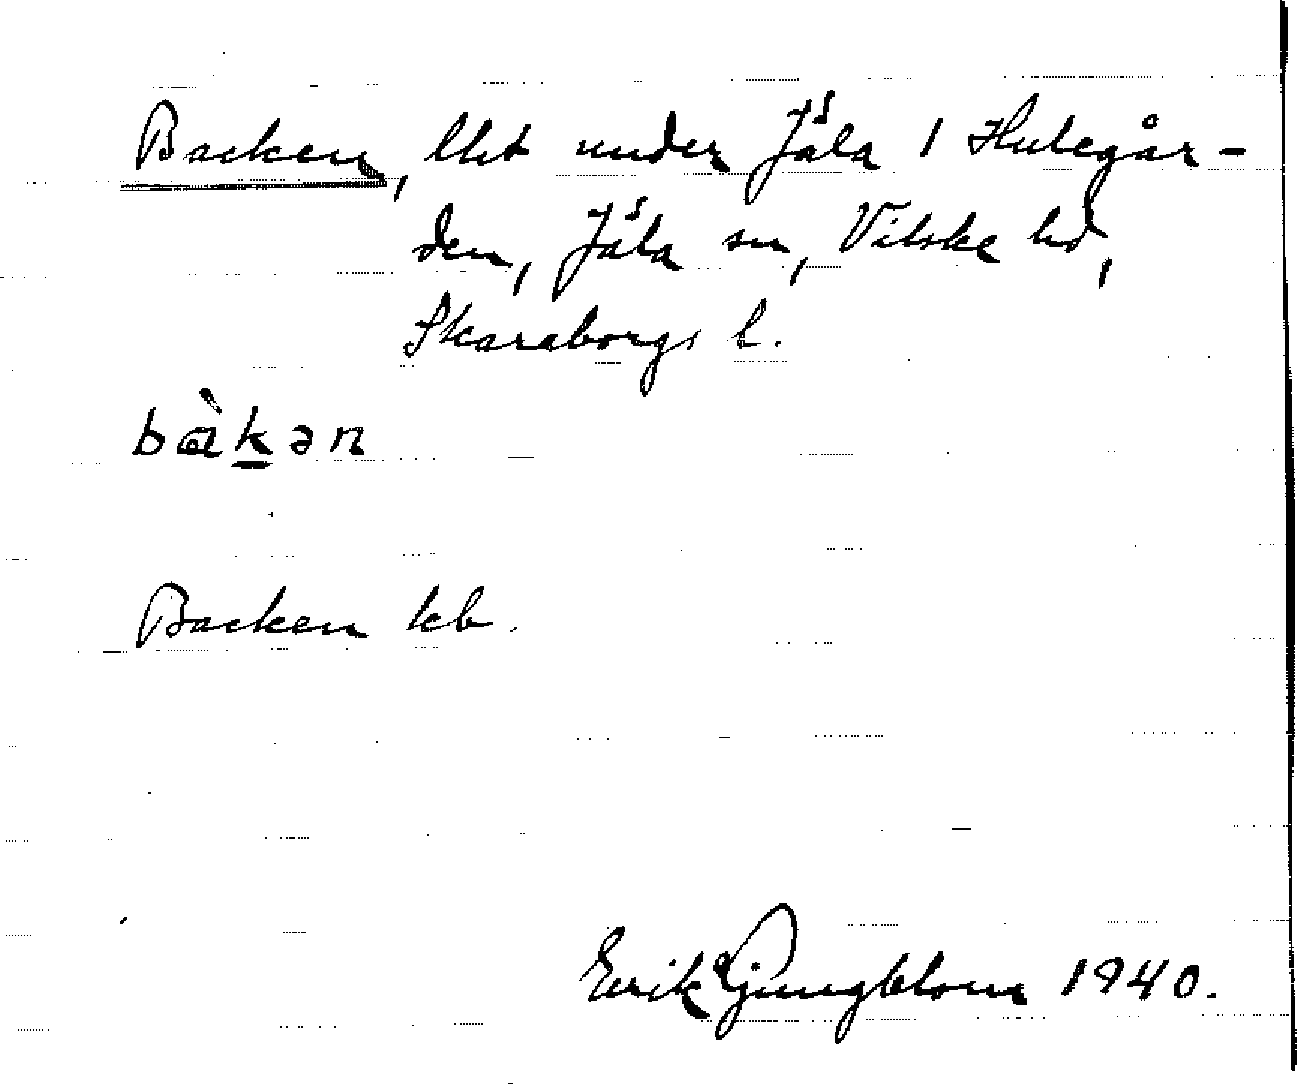 Backen, lht under Jäla 1 Hulegår-
den, Jäla sn, Vilske hd,
Skaraborgs l.
bὰk̲ən
Backen kb.
Erik Ljungblom 1940.